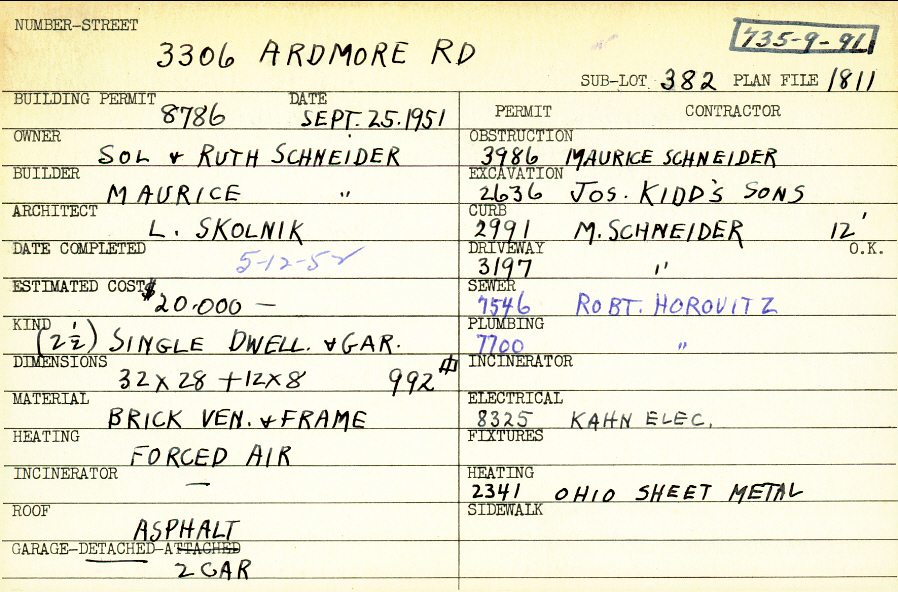 NUMBER-STREET
3306 ARDMORE RD
735-9-91
SUB-LOT 382 PLAN FILE 1811
BUILDING PERMIT DATE
8786 SEPT. 25. 1951
OWNER
SOL & RUTH SCHNEIDER
BUILDER
MAURICE "
ARCHITECT
L. SKOLNIK
DATE COMPLETED
5-12-52
ESTIMATED COST
$20.000 —
KIND
(2½) SINGLE DWELL. & GAR.
DIMENSIONS
32 x 28 + 12 x 8 992
MATERIAL
BRICK VEN. & FRAME
HEATING
FORCED AIR
INCINERATOR
—
ROOF
ASPHALT
GARAGE-DETACHED-ATTACHED
2 CAR
PERMIT CONTRACTOR
OBSTRUCTION
3986 MAURICE SCHNEIDER
EXCAVATION
2636 JOS. KIDD'S SONS
CURB
2991 M. SCHNEIDER 12'
DRIVEWAY O.K.
3197 "
SEWER
7546 ROBT. HOROVITZ
PLUMBING
7700 "
INCINERATOR
ELECTRICAL
8325 KAHN ELEC.
FIXTURES
HEATING
2341 OHIO SHEET METAL
SIDEWALK